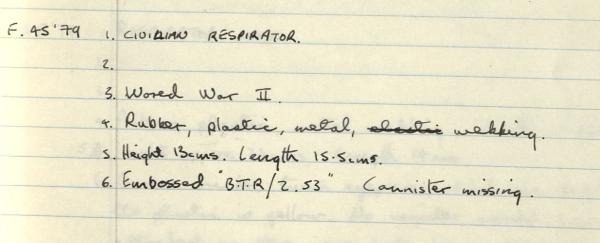 F. 45'79 1. CIVILIAN RESPIRATOR.
2.
3. Wored War II.
4. Rubber, plastic, metal, elastic webbing.
5. Height 13cms. Length 15.5cms.
6. Embossed "B.T.R/2.53" Cannister missing.